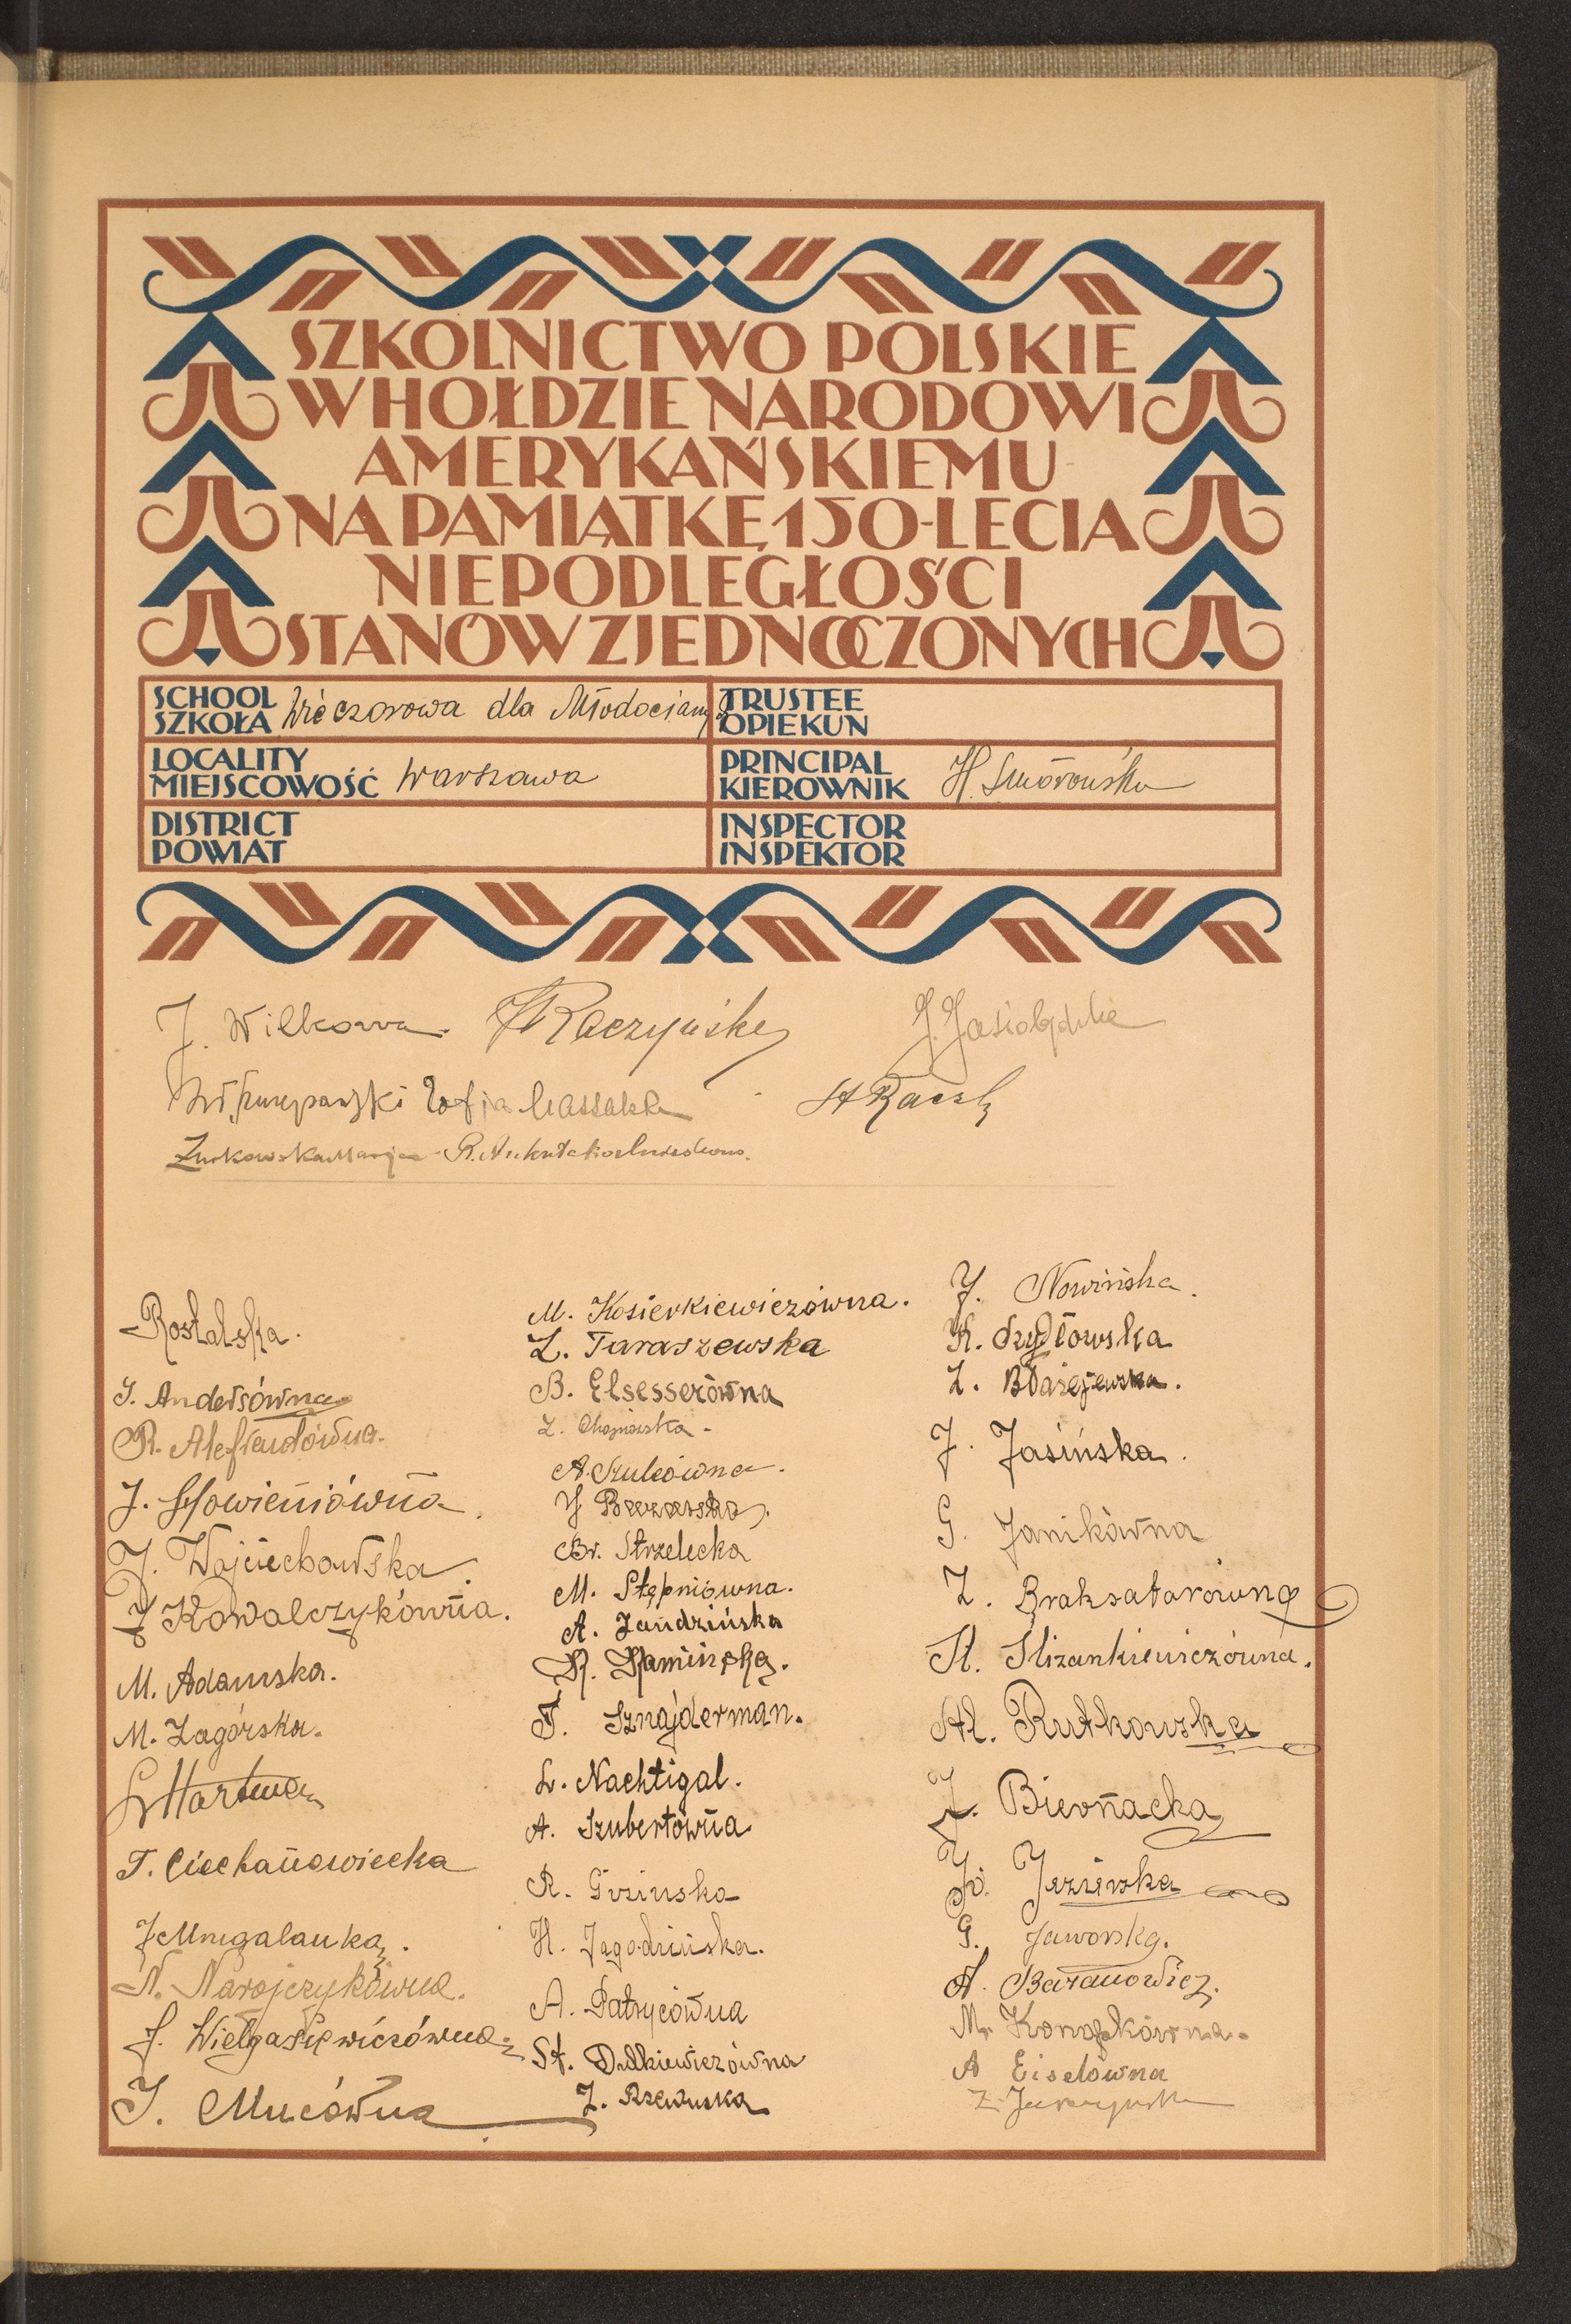 SZKOLNICTWO POLSKIE
W HOŁDZIE NARODOWI
AMERYKAŃSKIEMU
NA PAMIĄTKĘ 150-LECIA
NIEPODLEGŁOŚCI
STANÓW ZJEDNOCZONYCH
SCHOOL
SZKOŁA Wieczorowa dla Młodocianych
TRUSTEE
OPIEKUN
LOCALITY
MIEJSCOWOŚĆ Warszawa
PRINCIPAL
KIEROWNIK H.
DISTRICT
POWIAT
INSPECTOR
INSPEKTOR
J. Wilkowa
Zofja
Żurkowska Marja
Rostalska.
J. Andersówna
R.
J. Słowieniówna.
J. Wojciechowska.
J Kowalczykówna.
M. Adamska.
M. Zagórska.
Hartman
T. Ciechanowiecka
J
N. Narojczykówna.
J. Wielgasiewiczówna.
J. Mucówna
M. Kosierkiewiczówna.
Z. Taraszewska
B. Elsesserówna
Z. Chojnowska.
A. Szulcówna.
J
Br. Strzelecka
M. Stępniówna.
A. Zandzińska
K. Kamińska.
F. Sznajderman.
L. Nachtigal.
A. Szubertówna
R.
H. Jagodzińska.
A. Patrycówna
St. Dulkiewiczówna
Z. Rzewuska
J. Nowińska.
K. Szydłowska
Z. Błażejewska.
J. Jasińska.
G. Janikówna
Z. Braksatorówna
St. Slizankiewiczówna.
Al. Rutkowska
J. Biernacka
J. Jezierska
G. Jaworska.
A. Baranowicz.
M. Konopkówna.
A Eiselówna
Z.